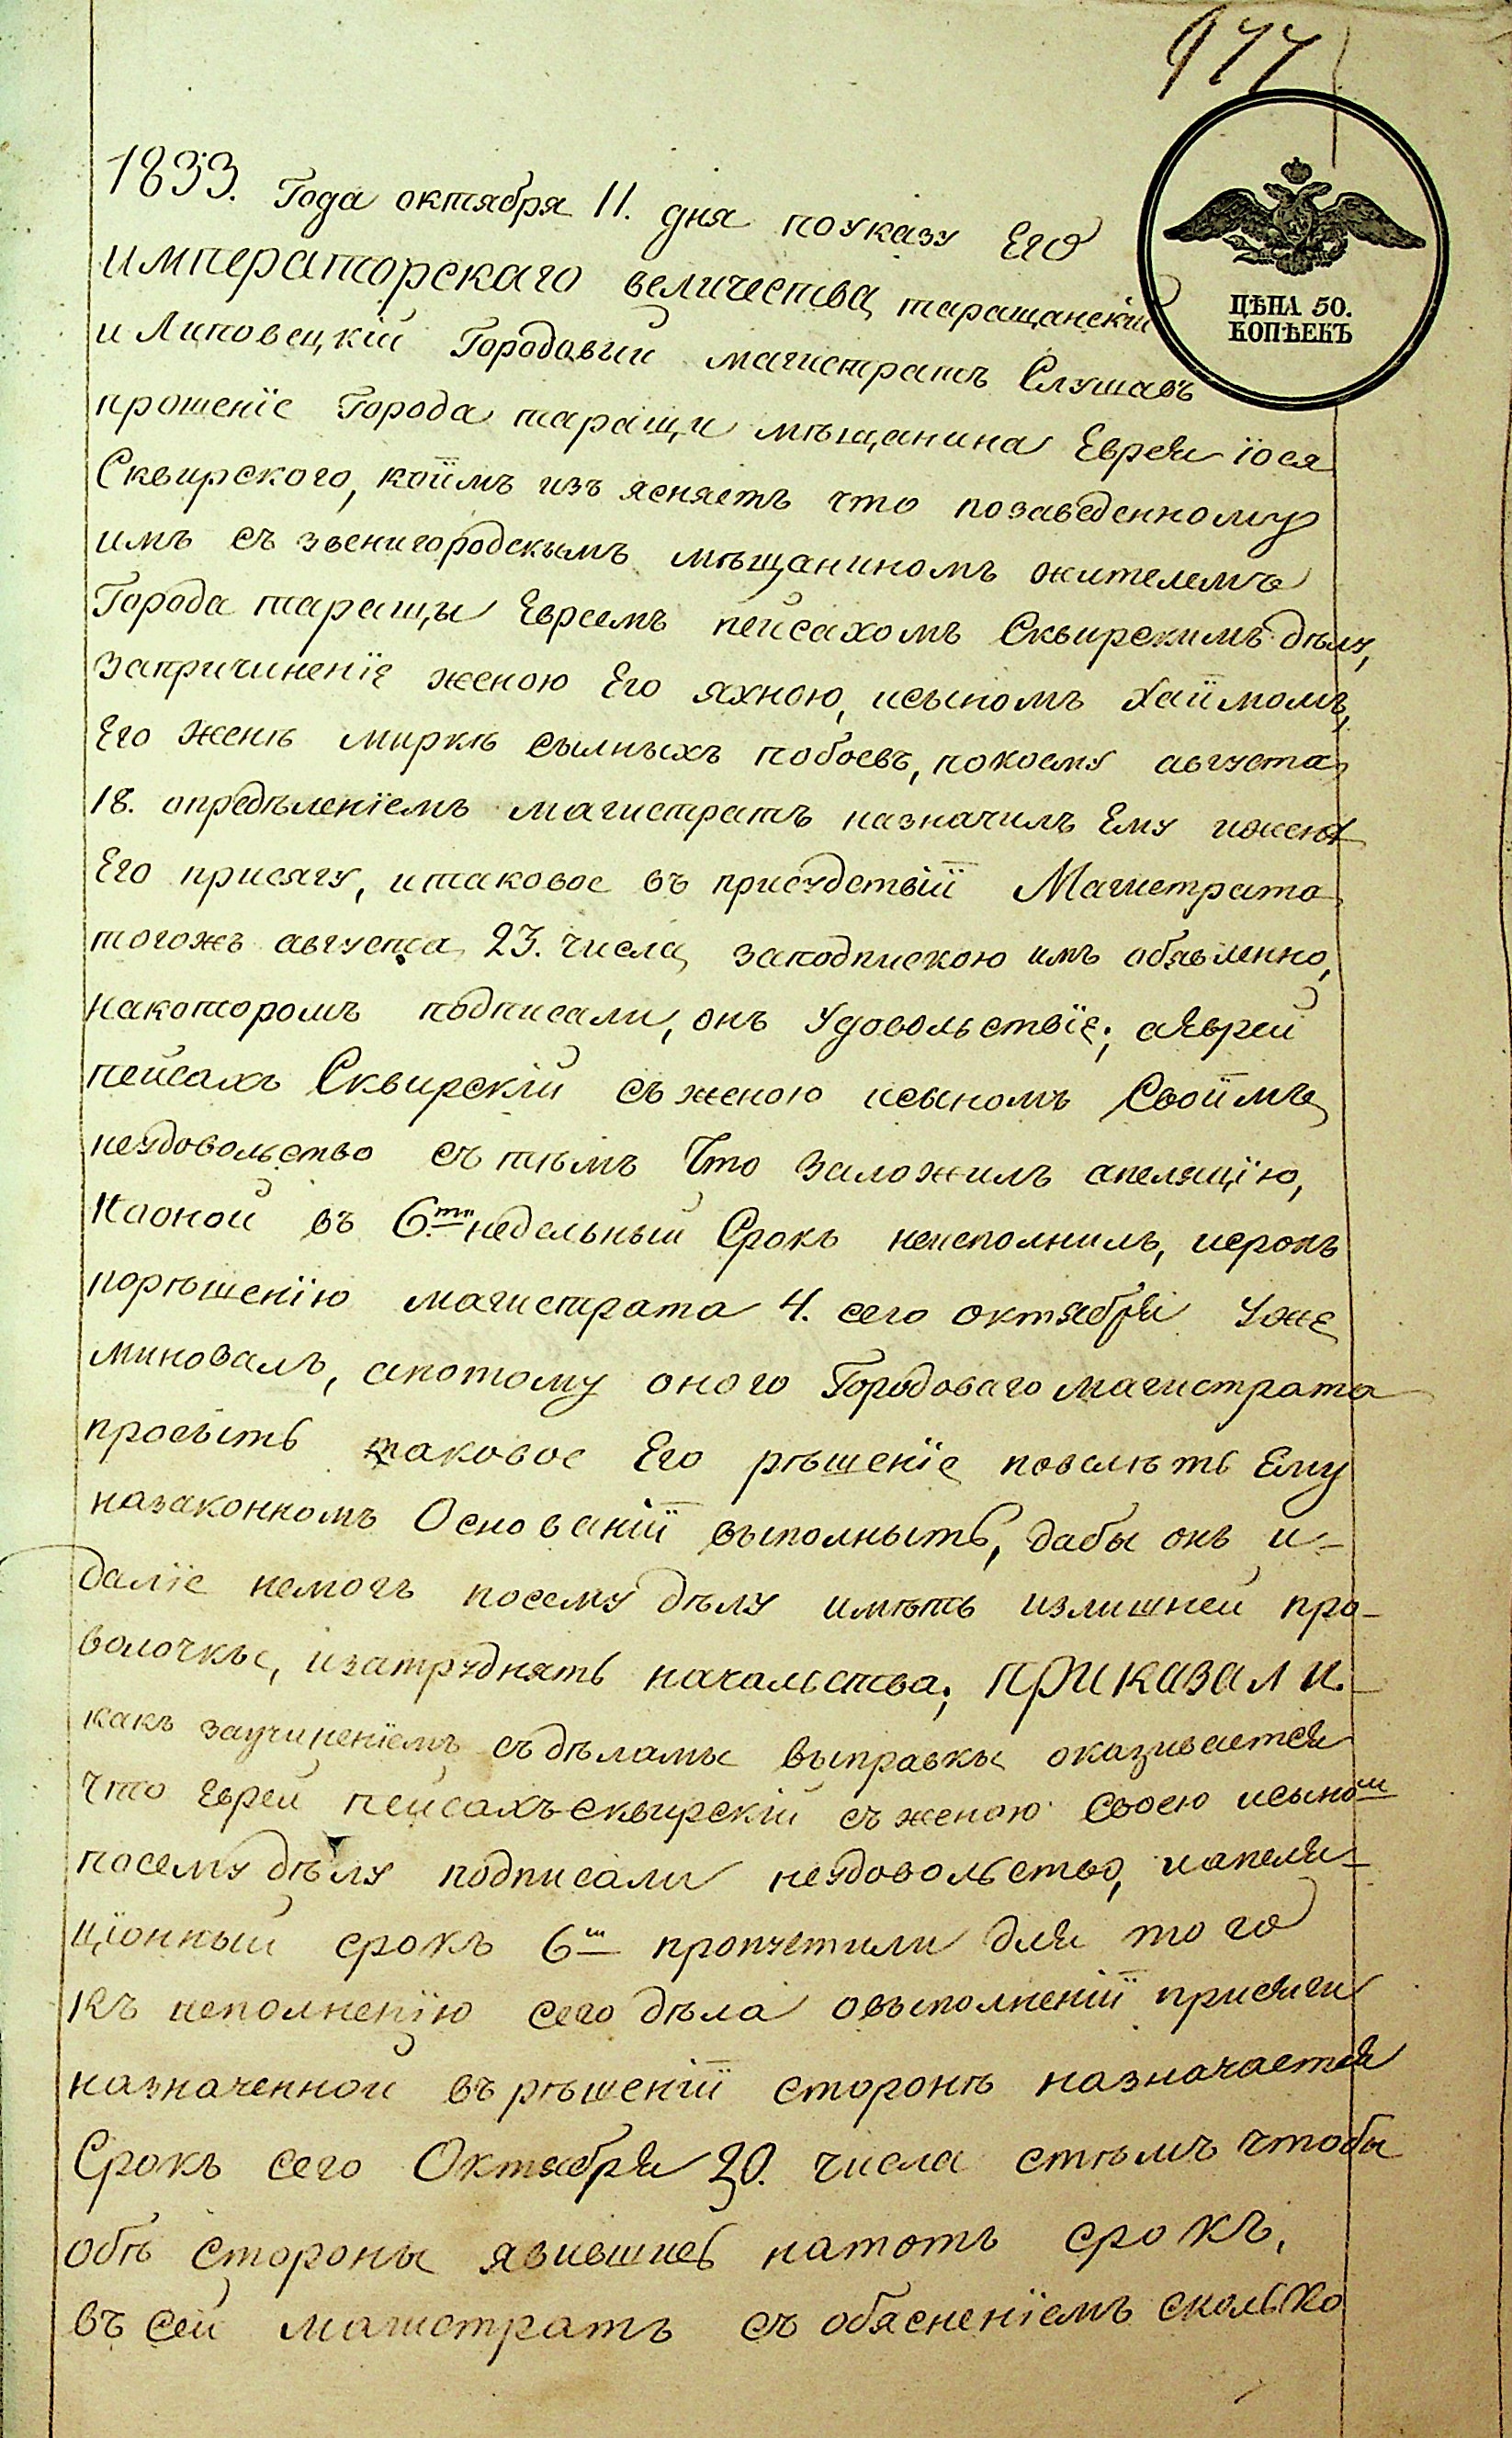 977
1833. Года октября 11. дня поуказу Его
императорскаго величества таращанскій
ЦѢНА 50.
КОПѢЕКЪ
и Липовецкій Городовый магистратъ Слушавъ
прошеніе Города таращи мѣщанина Еврея іося
Сквирского, коимъ изъ ясняетъ что позаведенному
имъ съ звенигородскимъ мѣщаниномъ жителемъ
Города таращы Евреемъ пейсахомъ Сквирскимъ дѣлу,
запричиненіе женою Его яхною, исыномъ хаимомъ,
Его женѣ миркѣ сылныхъ побоевъ, покоему августа
18. опредѣленіемъ магистратъ назначилъ Ему иженѣ
Его присягу, итаковое въ присудствіи Магистрата
тогожъ августа 23. числа заподпискою имъ обявленно,
накоторомъ подписали, онъ удовольствіе; аЯврей
пейсахъ Сквирскій съ женою исыномъ Своимъ
неудовольство съ тѣмъ Что заложилъ апеляцію,
Ноаной въ 6.ти недельный Срокъ неисполнилъ, исрокъ
порѣшенію магистрата 4. сего октября уже
миновалъ, апотому оного Городоваго магистрата
просыть таковое Его рѣшеніе повелѣть Ему
назаконномъ Основаніи выполныть, дабы онъ и-
даліе немогъ посему дѣлу имѣть излишней про-
волочкы, изатруднять начальства; приказали.
какъ заучиненіемъ съ дѣламы выправкы оказивается
что Еврей пейсахъ сквирскій съ женою своею исыномъ
посему дѣлу подписали неудовольство, иапеля-
ціонный срокъ 6ш пропустили для того
къ исполненію сего дѣла овыполненіи присяги
назначенной въ рѣшеніи сторонѣ назначается
Срокъ сего Октября 20. числа стѣмъ чтобы
обѣ стороны явившись натотъ срокъ,
въ сей магистратъ съ обясненіемъ сколько